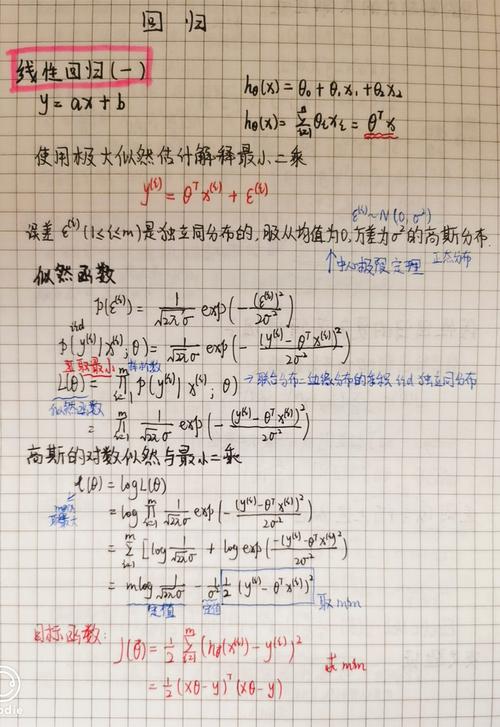 回归
线性回归(一)
y = ax + b
hθ(x) = θ0 + θ1x1 + θ2x2
hθ(x) = Σ_{i=1}^{n} θixi = θ^T x
使用极大似然估计解释最小二乘
y^(i) = θ^T x^(i) + ε^(i)
ε^(i) ~ N(0, σ²)
误差 ε^(i) (1≤i≤m)是独立同分布的,服从均值为0,方差为σ²的高斯分布
↑中心极限定理
正态分布
似然函数
p(ε^(i)) = 1/(√2π σ) exp(-(ε^(i))²/2σ²)
p(y^(i)|x^(i);θ) = 1/(√2π σ) exp(-(y^(i) - θ^T x^(i))²/2σ²)
样本数
L(θ) = Π_{i=1}^{m} p(y^(i)|x^(i);θ) → 联合分布=边缘分布的乘积 iid 独立同分布
似然函数
= Π_{i=1}^{m} 1/(√2π σ) exp(-(y^(i) - θ^T x^(i))²/2σ²)
高斯的对数似然与最小二乘
ℓ(θ) = log L(θ)
= log Π_{i=1}^{m} 1/(√2π σ) exp(-(y^(i) - θ^T x^(i))²/2σ²)
= Σ_{i=1}^{m} [log 1/(√2π σ) + log exp(-(y^(i) - θ^T x^(i))²/2σ²)
= m log 1/(√2π σ) - 1/σ² 1/2 (y^(i) - θ^T x^(i))² 取min
定值 定值
目标函数: J(θ) = 1/2 Σ_{i=1}^{m} (hθ(x^(i)) - y^(i))² 求min
= 1/2 (xθ - y)^T (xθ - y)